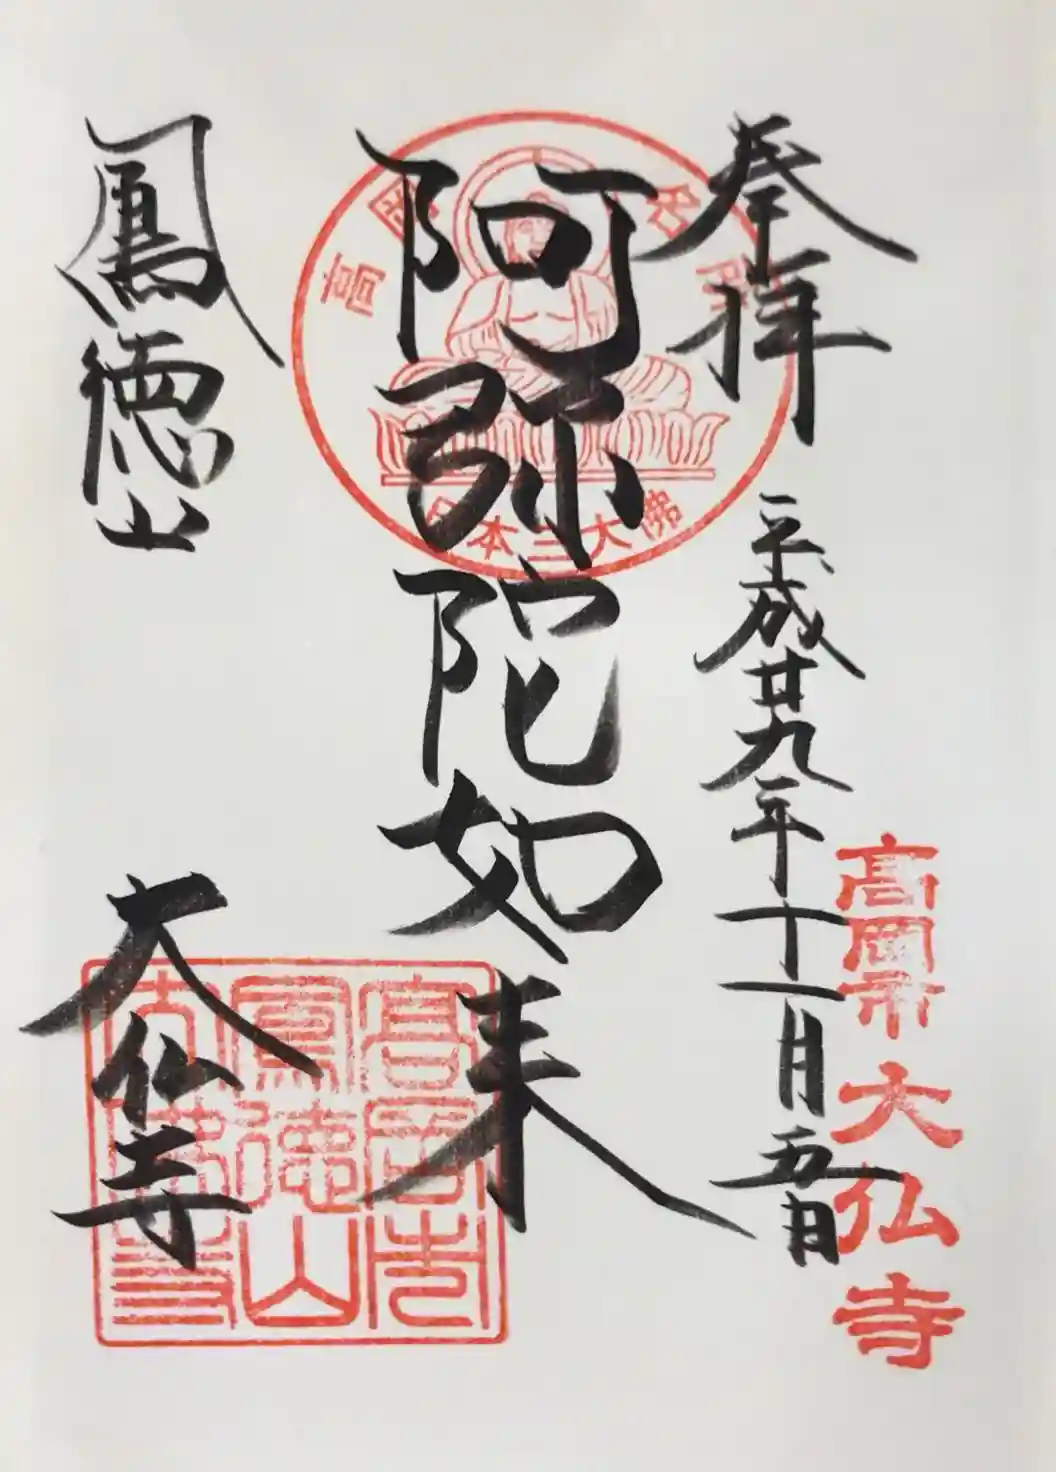 奉拝
平成廿九年十一月五日
高岡市大仏寺
阿弥陀如来
高岡名所
日本三大佛
鳳徳山
大仏寺
高岡市
鳳徳山
大佛寺